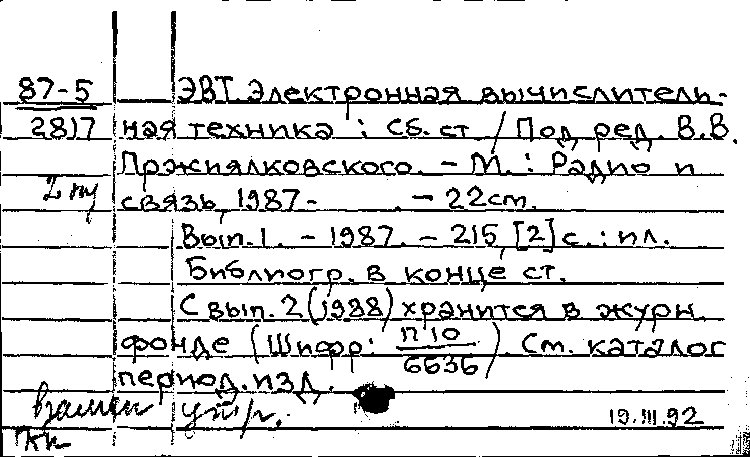 87-5 ЭВТ. Электронная вычислитель-
2817 ная техника : Сб. ст. / Под ред. В.В.
Пржиялковского. - М. : Радио и
связь, 1987- . - 22см.
Вып.1. - 1987. - 215,[2]с. : ил.
Библиогр. в конце ст.
С вып. 2(1988) хранится в журн.
фонде (Шифр: П10/6636). См. каталог
период. изд.
взамен утр.
19.III.92